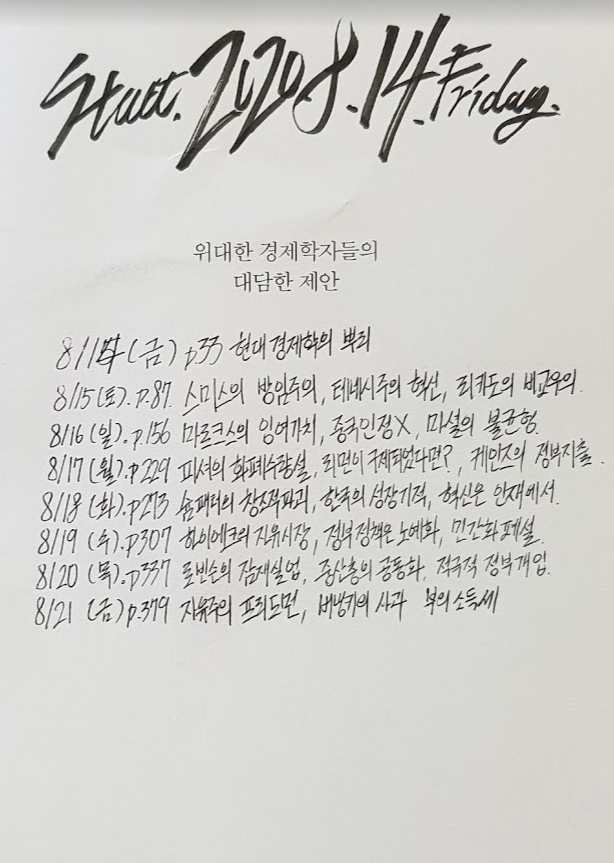 Start. 2020 8.14. Friday.
위대한 경제학자들의
대담한 제안
8/14 (금) p33 현대 경제학의 뿌리
8/15 (토). p.87. 스미스의 방임주의, 테네시주의 혁신, 리카도의 비교우의.
8/16 (일). p.156 마르크스의 잉여가치, 중국인정X, 마셜의 불균형.
8/17 (월). p229 피셔의 화폐수량설, 리먼이 구제되었다면?, 케인즈의 정부지출.
8/18 (화). p273 슘페터의 창조적파괴, 한국의 성장기적, 혁신은 인재에서.
8/19 (수). p307 하이에크의 자유시장, 정부정책은 노예화, 민간화폐설.
8/20 (목). p337 로빈슨의 잠재실업, 중산층의 공동화, 적극적 정부개입.
8/21 (금) p.379 자유주의 프리드먼, 버냉키의 사과 부의 소득세